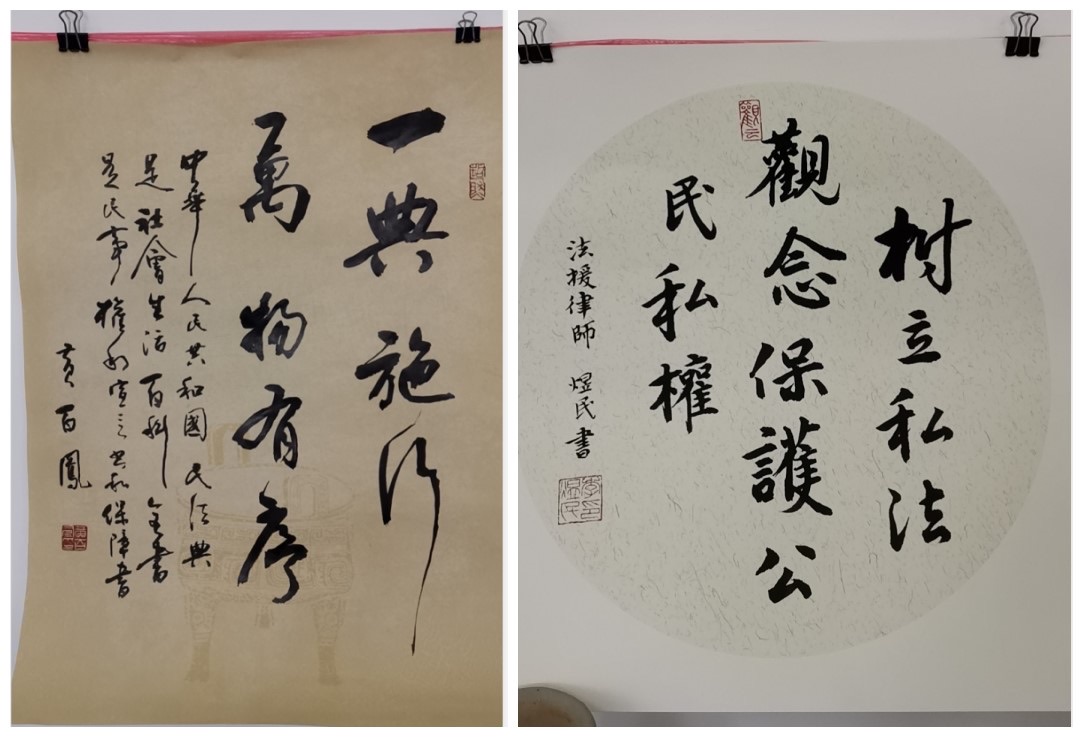 一典施行
萬物有序
中華人民共和國民法典
是社會生活百科全書
是民事權利宣言書和保障書
黃百鳳
觀雲
樹立私法
觀念保護公
民私權
法援律師 煜民書